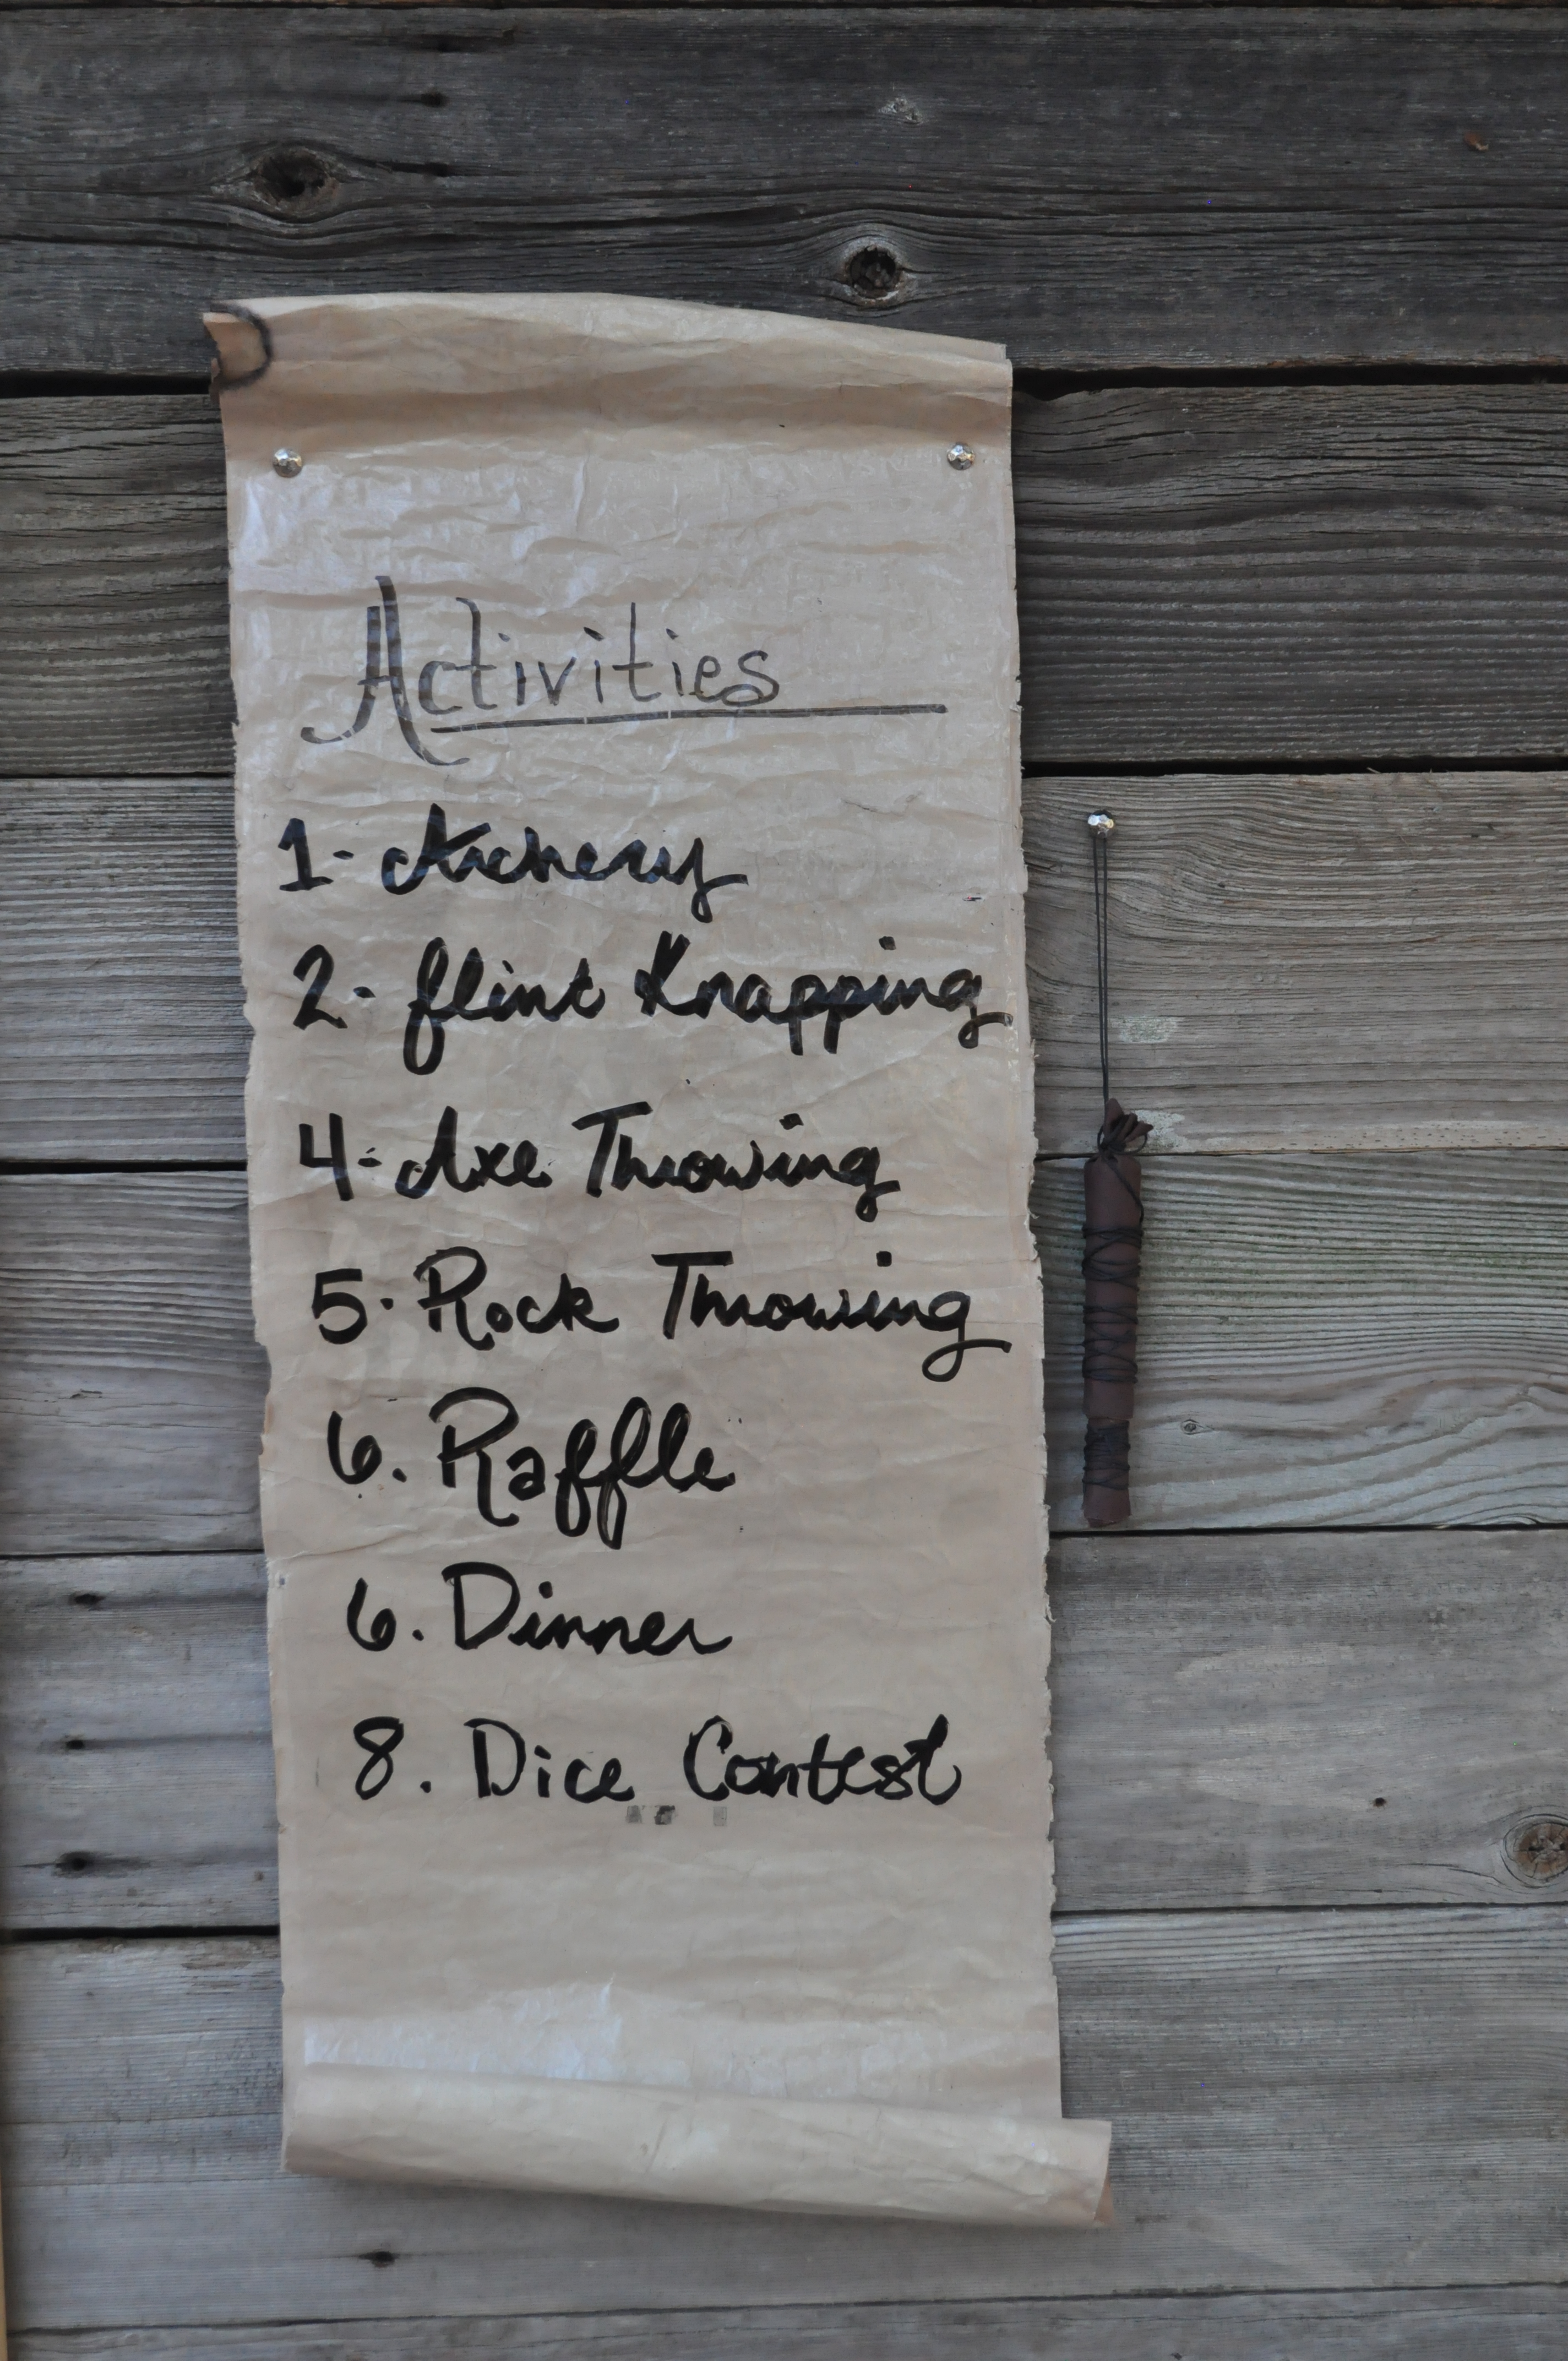 Activities
1- Archery
2- flint Knapping
4- Axe Throwing
5. Rock Throwing
6. Raffle
6. Dinner
8. Dice Contest